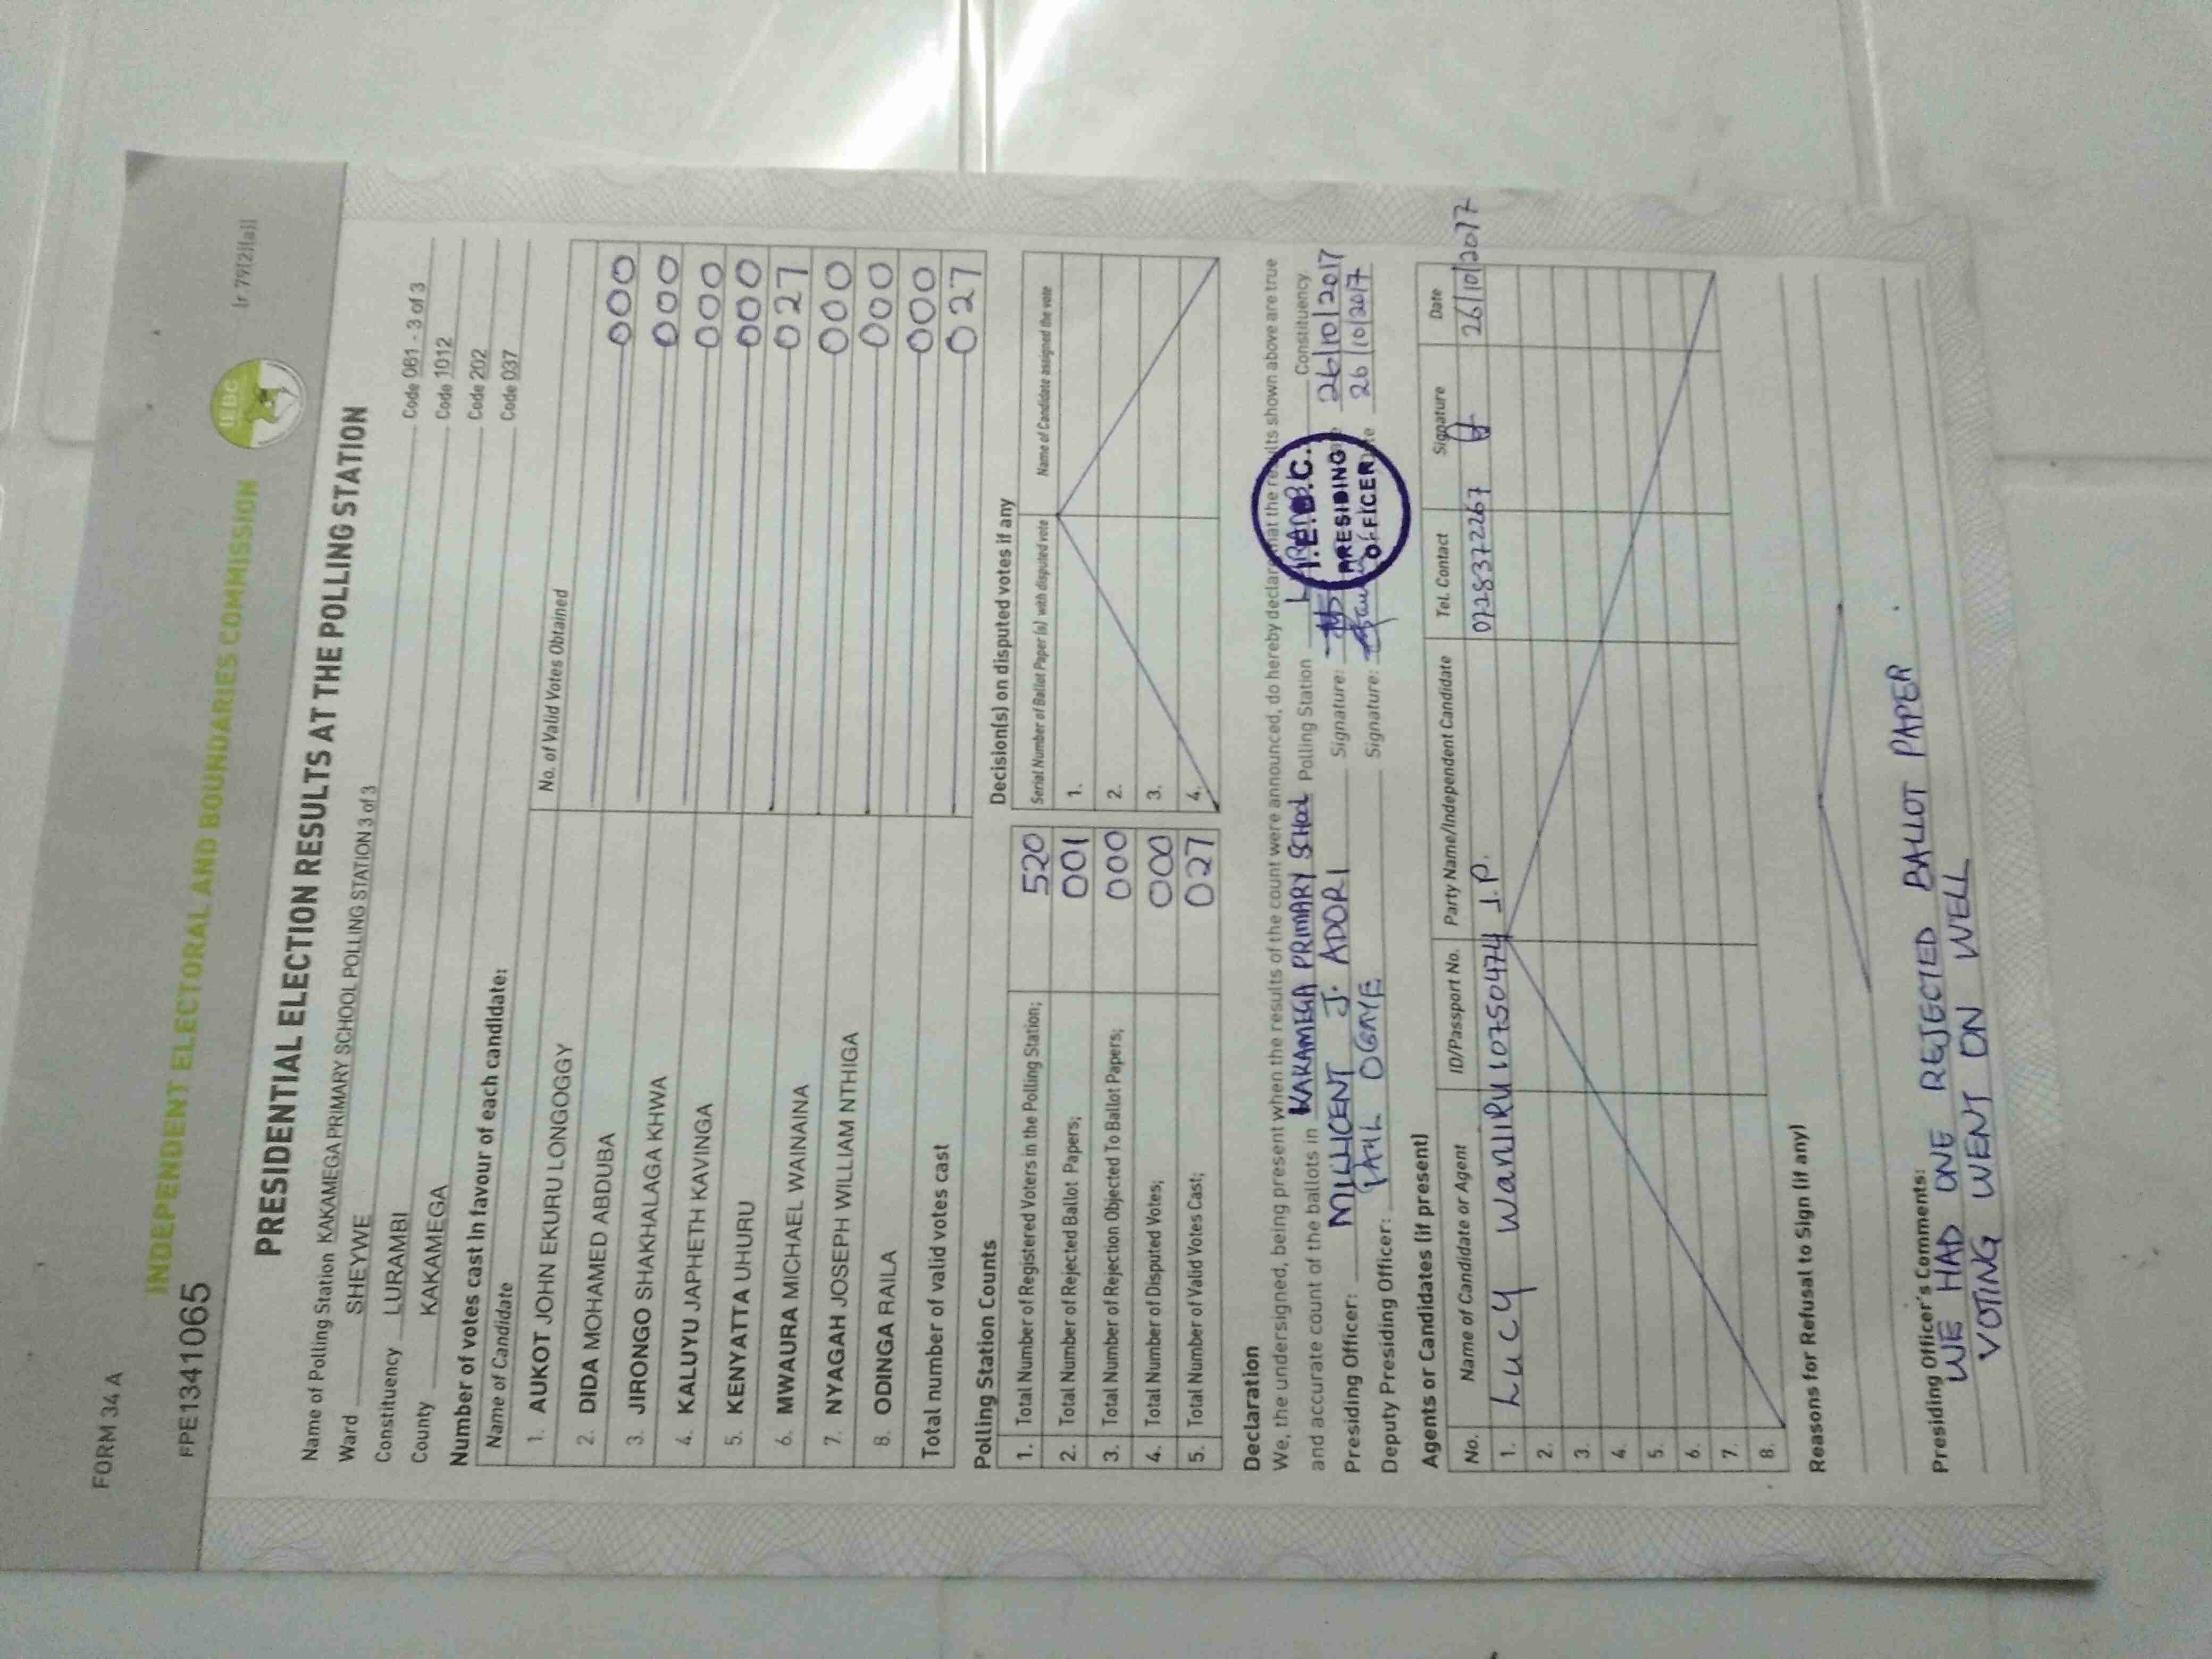 FORM 34 A
FPE1341065
INDEPENDENT ELECTORAL AND BOUNDARIES COMMISSION
IEBC
(r 79(2)(a))
PRESIDENTIAL ELECTION RESULTS AT THE POLLING STATION
Name of Polling Station KAKAMEGA PRIMARY SCHOOL POLLING STATION 3 of 3 Code 061 - 3 of 3
Ward SHEYWE Code 1012
Constituency LURAMBI Code 202
County KAKAMEGA Code 037
Number of votes cast in favour of each candidate:
Name of Candidate No. of Valid Votes Obtained
1. AUKOT JOHN EKURU LONGOGGY 000
2. DIDA MOHAMED ABDUBA 000
3. JIRONGO SHAKHALAGA KHWA 000
4. KALUYU JAPHETH KAVINGA 000
5. KENYATTA UHURU 027
6. MWAURA MICHAEL WAINAINA 000
7. NYAGAH JOSEPH WILLIAM NTHIGA 000
8. ODINGA RAILA 000
Total number of valid votes cast 027
Polling Station Counts
1. Total Number of Registered Voters in the Polling Station; 520
2. Total Number of Rejected Ballot Papers; 001
3. Total Number of Rejection Objected To Ballot Papers; 000
4. Total Number of Disputed Votes; 000
5. Total Number of Valid Votes Cast; 027
Decision(s) on disputed votes if any
Serial Number of Ballot Paper (s) with disputed vote Name of Candidate assigned the vote
1.
2.
3.
4.
Declaration
We, the undersigned, being present when the results of the count were announced, do hereby declare that the results shown above are true
and accurate count of the ballots in KAKAMEGA PRIMARY SCHOOL Polling Station Constituency
Presiding Officer: MILLICENT J. ADORI Signature: 26/10/2017
Deputy Presiding Officer: PAUL OGAYE Signature: 26/10/2017
I.E.B.C.
PRESIDING
OFFICER
Agents or Candidates (if present)
No. Name of Candidate or Agent ID/Passport No. Party Name/Independent Candidate Tel. Contact Signature Date
1. LUCY WANJIRU 10750474 J.P. 0728372267 26/10/2017
2.
3.
4.
5.
6.
7.
8.
Reasons for Refusal to Sign (if any)
Presiding Officer's Comments:
WE HAD ONE REJECTED BALLOT PAPER.
VOTING WENT ON WELL